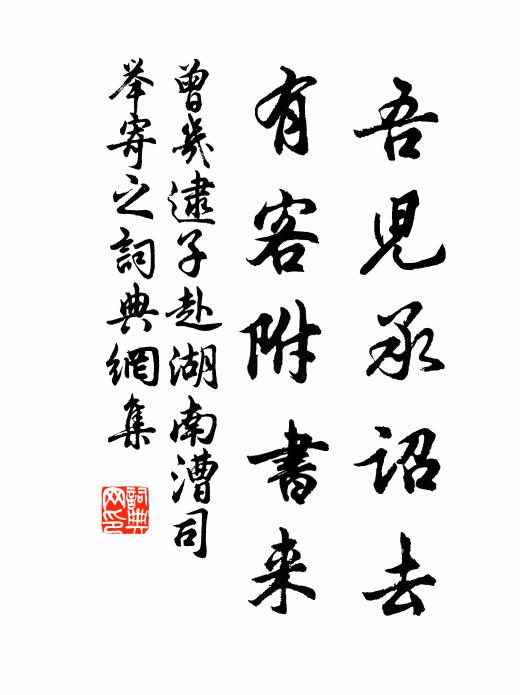 吾児承詔去
有客附書来
曾幾逮子赴湖南漕司
举寄之詞典網集
詞典网印